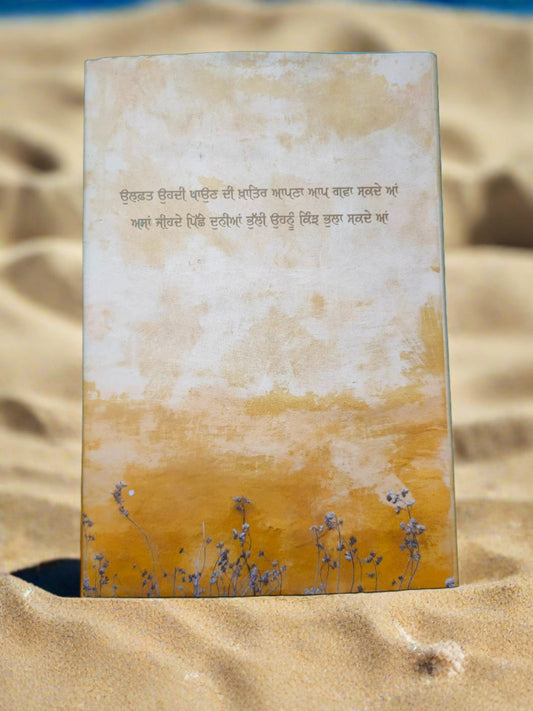 ਉਲਫ਼ਤ ਉਹਦੀ ਥਾਉਣ ਦੀ ਖ਼ਾਤਿਰ ਆਪਣਾ ਆਪ ਗਵਾ ਸਕਦੇ ਆਂ
ਅਸਾਂ ਜੀਹਦੇ ਪਿੱਛੇ ਦੁਨੀਆਂ ਭੁੱਲੀ ਉਹਨੂੰ ਕਿੰਝ ਭੁਲਾ ਸਕਦੇ ਆਂ